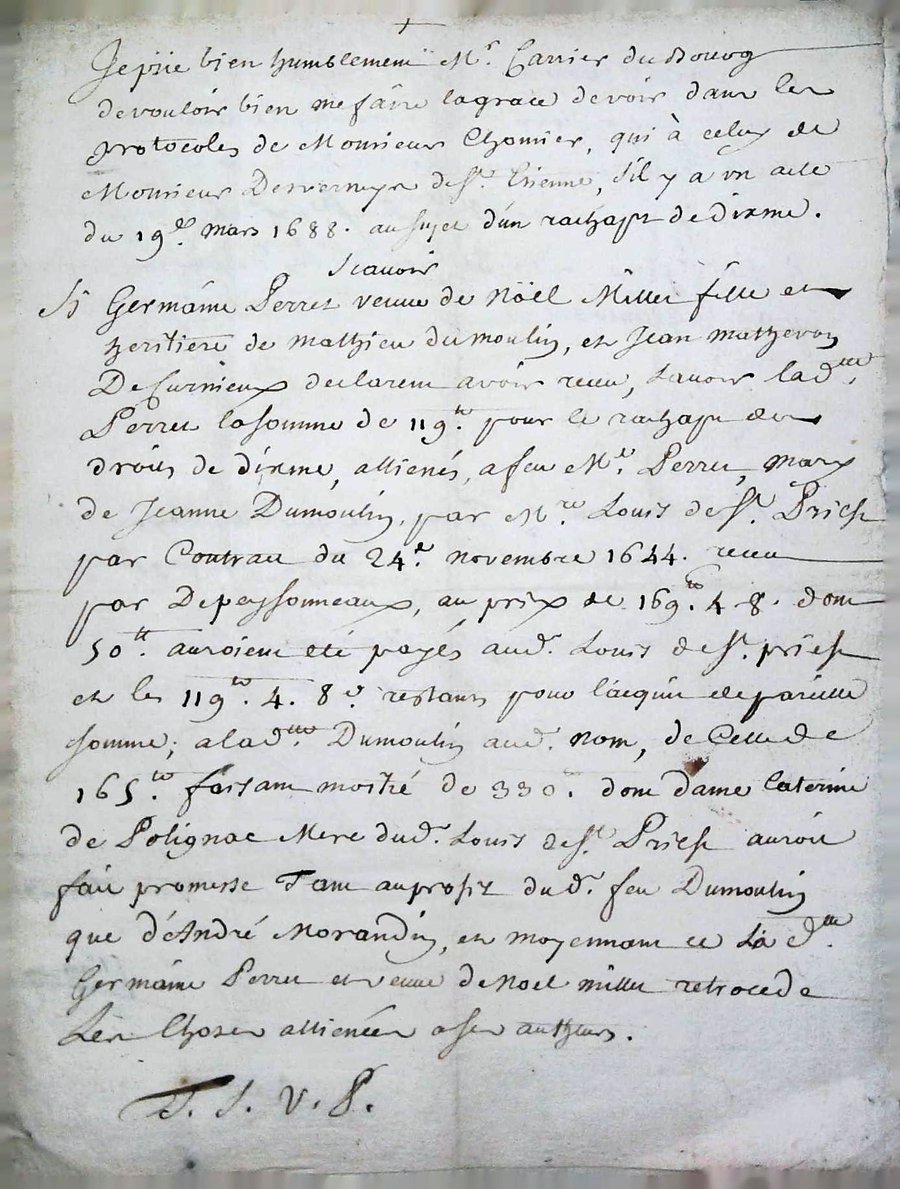 Je prie bien humblement Mr. Carrier du Bourg
de vouloir bien me faire la grace de voir dans les
protocoles de Monsieur Chomier, qui à celuy de
Monsieur Desverneys de St. Etienne, s'il y a un acte
du 19e. mars 1688. au sujet d'un rachapt de dixme.
Scavoir
Si Germaine Perret veuve de Noël Millet fille et
heritiere de mathieu dumoulin, et Jean matheron
De Curnieux declarent avoir receu, scavoir lad.
Perret la somme de 119 tt. pour le rachapt des
droits de dixme, allienés, a feu Me. Perret, mary
de Jeanne Dumoulin, par Mre. Louis de St. Priest
par Contract du 24e. novembre 1644. receu
par Depeyssonneaux, au prix de 169 tt. 4. 8. dont
50 tt. auroient été payés aud. Louis de St. priest
et les 119 tt. 4. 8 d. restants pour l'acquit de pareille
somme; a lad. Dumoulin aud. nom, de Celle de
165 tt. faisant moitié de 330. dont dame Caterine
de Polignac Mere dud. Louis de St. Priest auroit
fait promesse Tant au profit dud. feu Dumoulin
que d'André Morandin, et moyennant ce La d.
Germaine Perret et veuve de Noel millet retrocede
Les Choses allienées a ses autheurs.
T. S. V. P.